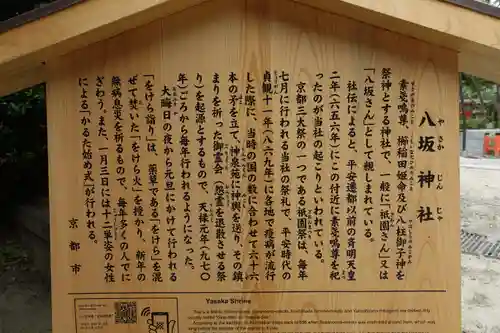 八坂神社
やさかじんじゃ
素戔嗚尊、櫛稲田姫命及び八柱御子神を
祭神とする神社で、一般に「祇園さん」又は
「八坂さん」として親しまれている。
社伝によると、平安遷都以前の斉明天皇
二年（六五六年）にこの付近に素戔嗚尊を祀
ったのが当社の起こりといわれている。
京都三大祭の一つである祇園祭は、毎年
七月に行われる当社の祭礼で、平安時代の
貞観十一年（八六九年）に各地で疫病が流行
した際に、当時の国の数に合わせて六十六
本の矛を立て、神泉苑に神輿を送り、その鎮
まりを祈った御霊会（怨霊を退散させる祭
り）を起源とするもので、天禄元年（九七〇
年）ごろから毎年行われるようになった。
大晦日の夜から元旦にかけて行われる
「をけら詣り」は、薬草である「をけら」を混
ぜて焚いた「をけら火」を授かり、新年の
除病息災を祈るもので、毎年多くの人でに
ぎわう。また、一月三日には十二単姿の女性
による「かるた始め式」が行われる。
京都市
Yasaka Shrine